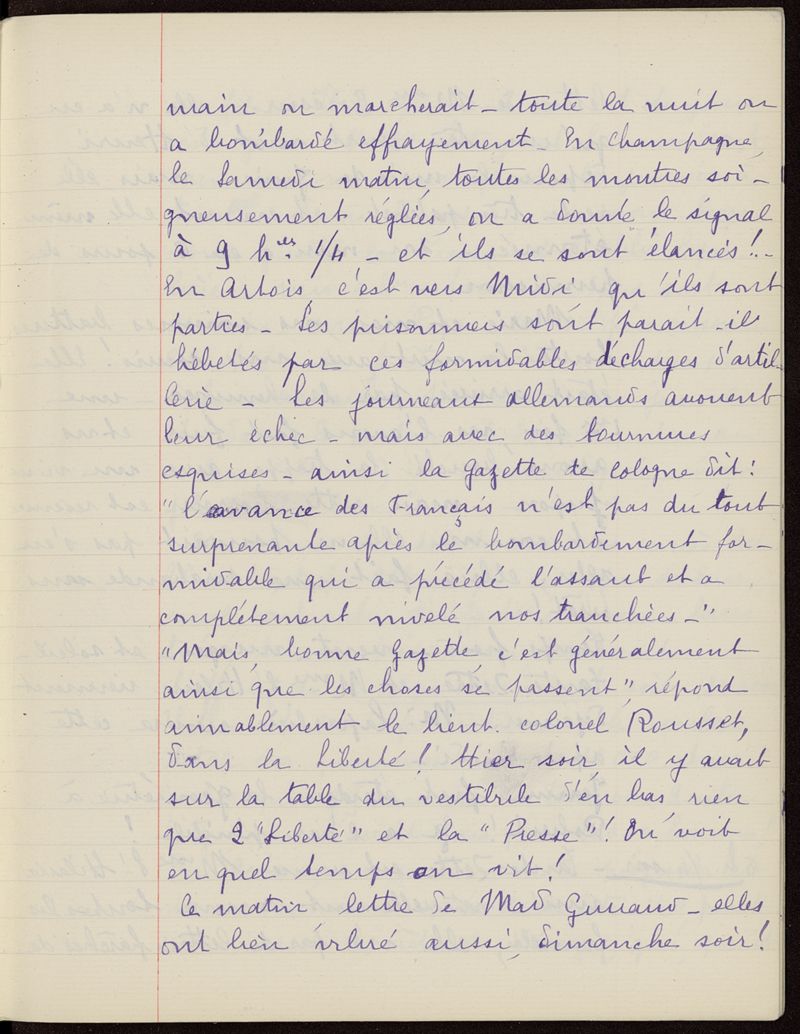 main on marcherait – toute la nuit on
a bombardé effrayement – En Champagne,
le Samedi matin, toutes les montres soi-
gneusement réglées, on a donné le signal
à 9 h.res 1/4 – et ils se sont élancés !..
En Artois, c'est vers Midi, qu'ils sont
partis – Les prisonniers sont parait-il
hébetés par ces formidables décharges d'artil-
lerie – Les journeaux allemands avouent
leur échec – mais avec des tournures
exquises – ainsi la Gazette de Cologne dit :
"l'avance des Français n'est pas du tout
surprenante après le bombardement for-
midable qui a précédé l'assaut et a
complétement nivelé nos tranchées – "
"Mais, bonne Gazette, c'est généralement
ainsi que les choses se passent", répond
aimablement le lieut. colonel Rousset,
dans la Liberté ! Hier soir, il y avait
sur la table du vestibule d'en bas rien
que 2 "Liberté" et la "Presse" ! On voit
en quel temps on vit !
Ce matin lettre de Mad – elles
ont bien vibré aussi, dimanche soir !